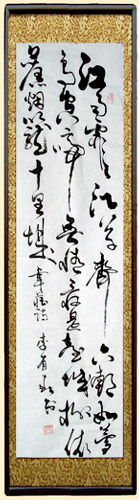 江雨霏霏江草齊六朝如夢
鳥空啼無情最是臺城柳依
舊烟籠十里堤 韋莊詩 李有 書